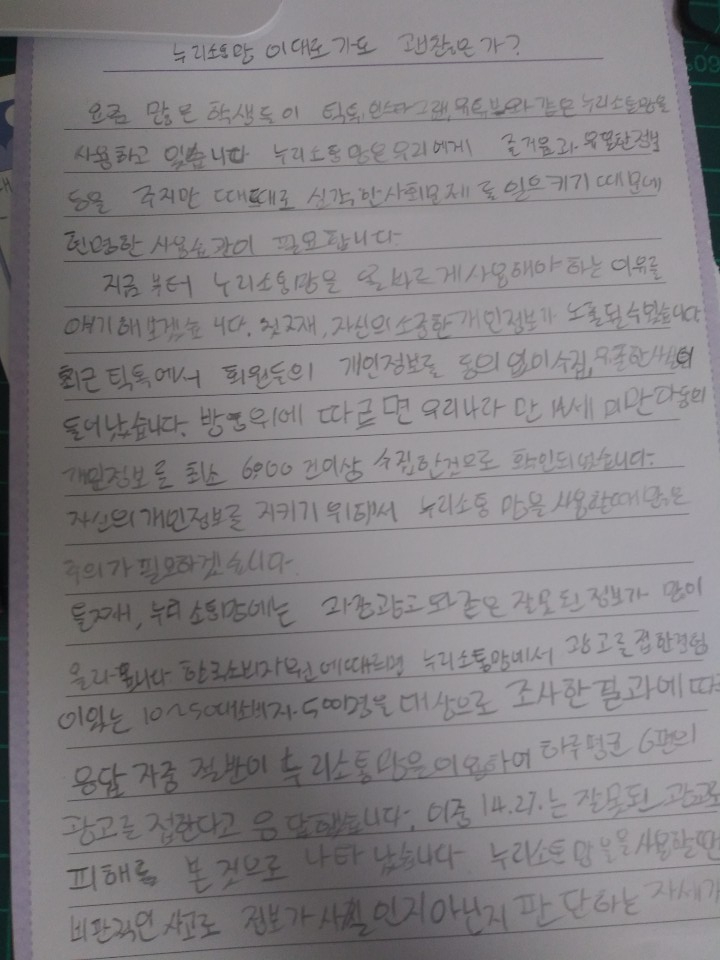 누리소통망 이대로가도 괜찮은가?
요즘 많은 학생들이 틱톡, 인스타그램, 유튜브와 같은 누리소통망을
사용하고 있습니다 누리소통망은 우리에게 즐거움과 유익한 정보
등을 주지만 때때로 심각한 사회문제를 일으키기 때문에
현명한 사용습관이 필요합니다.
지금부터 누리소통망은 올바르게 사용해야 하는 이유를
얘기해보겠습니다. 첫째, 자신의 소중한 개인정보가 노출될 수 있습니다
최근 틱톡에서 회원들의 개인정보를 동의 없이 수집, 유출한 사실이
들어났습니다. 방통위에 따르면 우리나라 만 14세 미만 아동의
개인정보를 최소 6000 건이상 수집한것으로 확인되었습니다.
자신의 개인정보를 지키기 위해서 누리소통망을 사용할때 많은
주의가 필요하겠습니다.
둘째, 누리소통망에는 과장광고와 같은 잘못된 정보가 많이
올라옵니다 한국소비자원에 따르면 누리소통망에서 광고를 접한 경험
이있는 10~50대소비자 500명을 대상으로 조사한 결과에 따르
응답자중 절반이 누리소통망을 이용하여 하루평균 6편의
광고를 접한다고 응답했습니다. 이중 14.2%는 잘못된 광고로
피해를 본 것으로 나타났습니다. 누리소통망을 사용할땐
비판적인 사고로 정보가 사실인지아닌지 판단하는 자세가